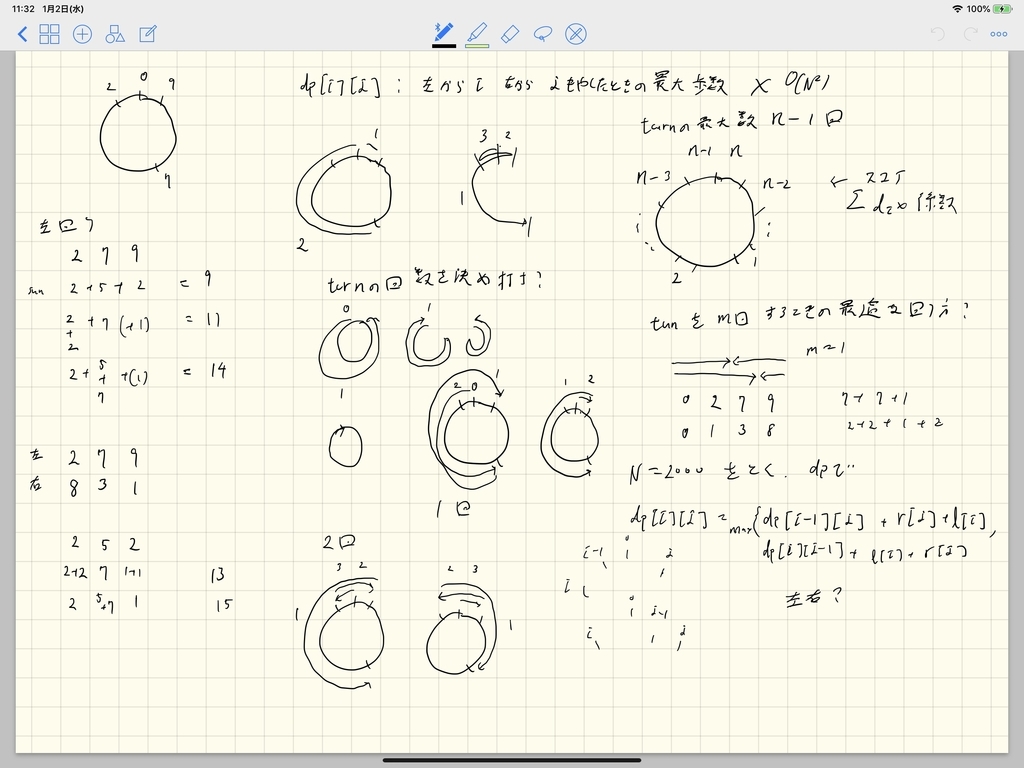 11:32 1月2日(水)
100%
2 0 9
7
dp[i][j] : 左からi 右からjを燃やしたときの最大歩数 × O(N²)
turnの最大数 n-1回
n-1 n
n-3 n-2
2 1
← ココで
Σ d₂× 係数
左回り
2 7 9
sum 2+5+2 = 9
2+2 + 7 (+1) = 11
2+ 5+7 +(1) = 14
左 2 7 9
右 8 3 1
2 5 2
2+2 7 1+1 13
2 5+7 1 15
1
2
3 2
1
turnの回数を決め打ち?
0 1
1
2 0 1
1 2
1回
2回
3 2
1
2 3
1
turnをm回するときの最適な回り方?
m=1
0 2 7 9
0 1 3 8
7+7+1
2+2+1+2
N=2000 をとく. dpで..
dp[i][j] = max{dp[i-1][j] + r[j]+l[i],
dp[i][j-1]+ l[i]+r[j]
i-1 0 j
i 0 j-1
i j
左右?